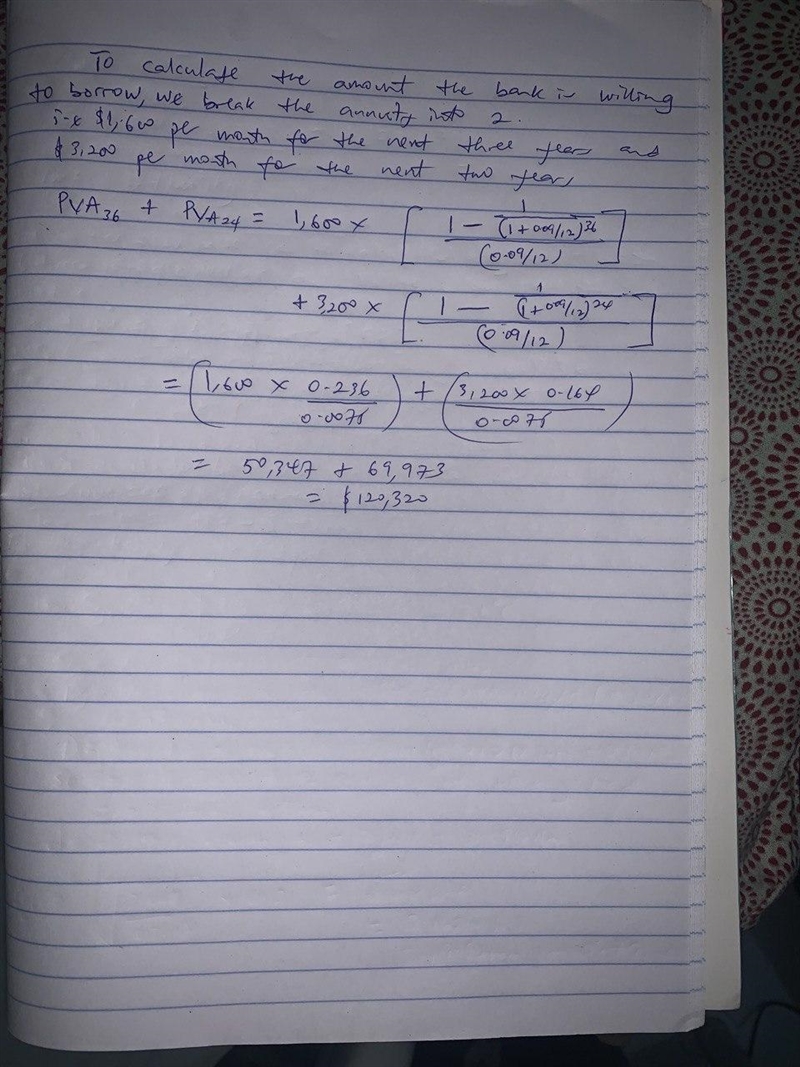 To calculate the amount the bank is willing
to borrow, we break the annuity into 2.
i.e $1,600 per month for the next three years and
$3,200 per month for the next two years
PVA36 + PVA24 = 1,600 x [ 1 - 1/(1+0.09/12)^36 / (0.09/12) ]
+ 3,200 x [ 1 - 1/(1+0.09/12)^24 / (0.09/12) ]
= (1,600 x 0.236/0.0075) + (3,200 x 0.164/0.0075)
= 50,347 + 69,973
= $120,320